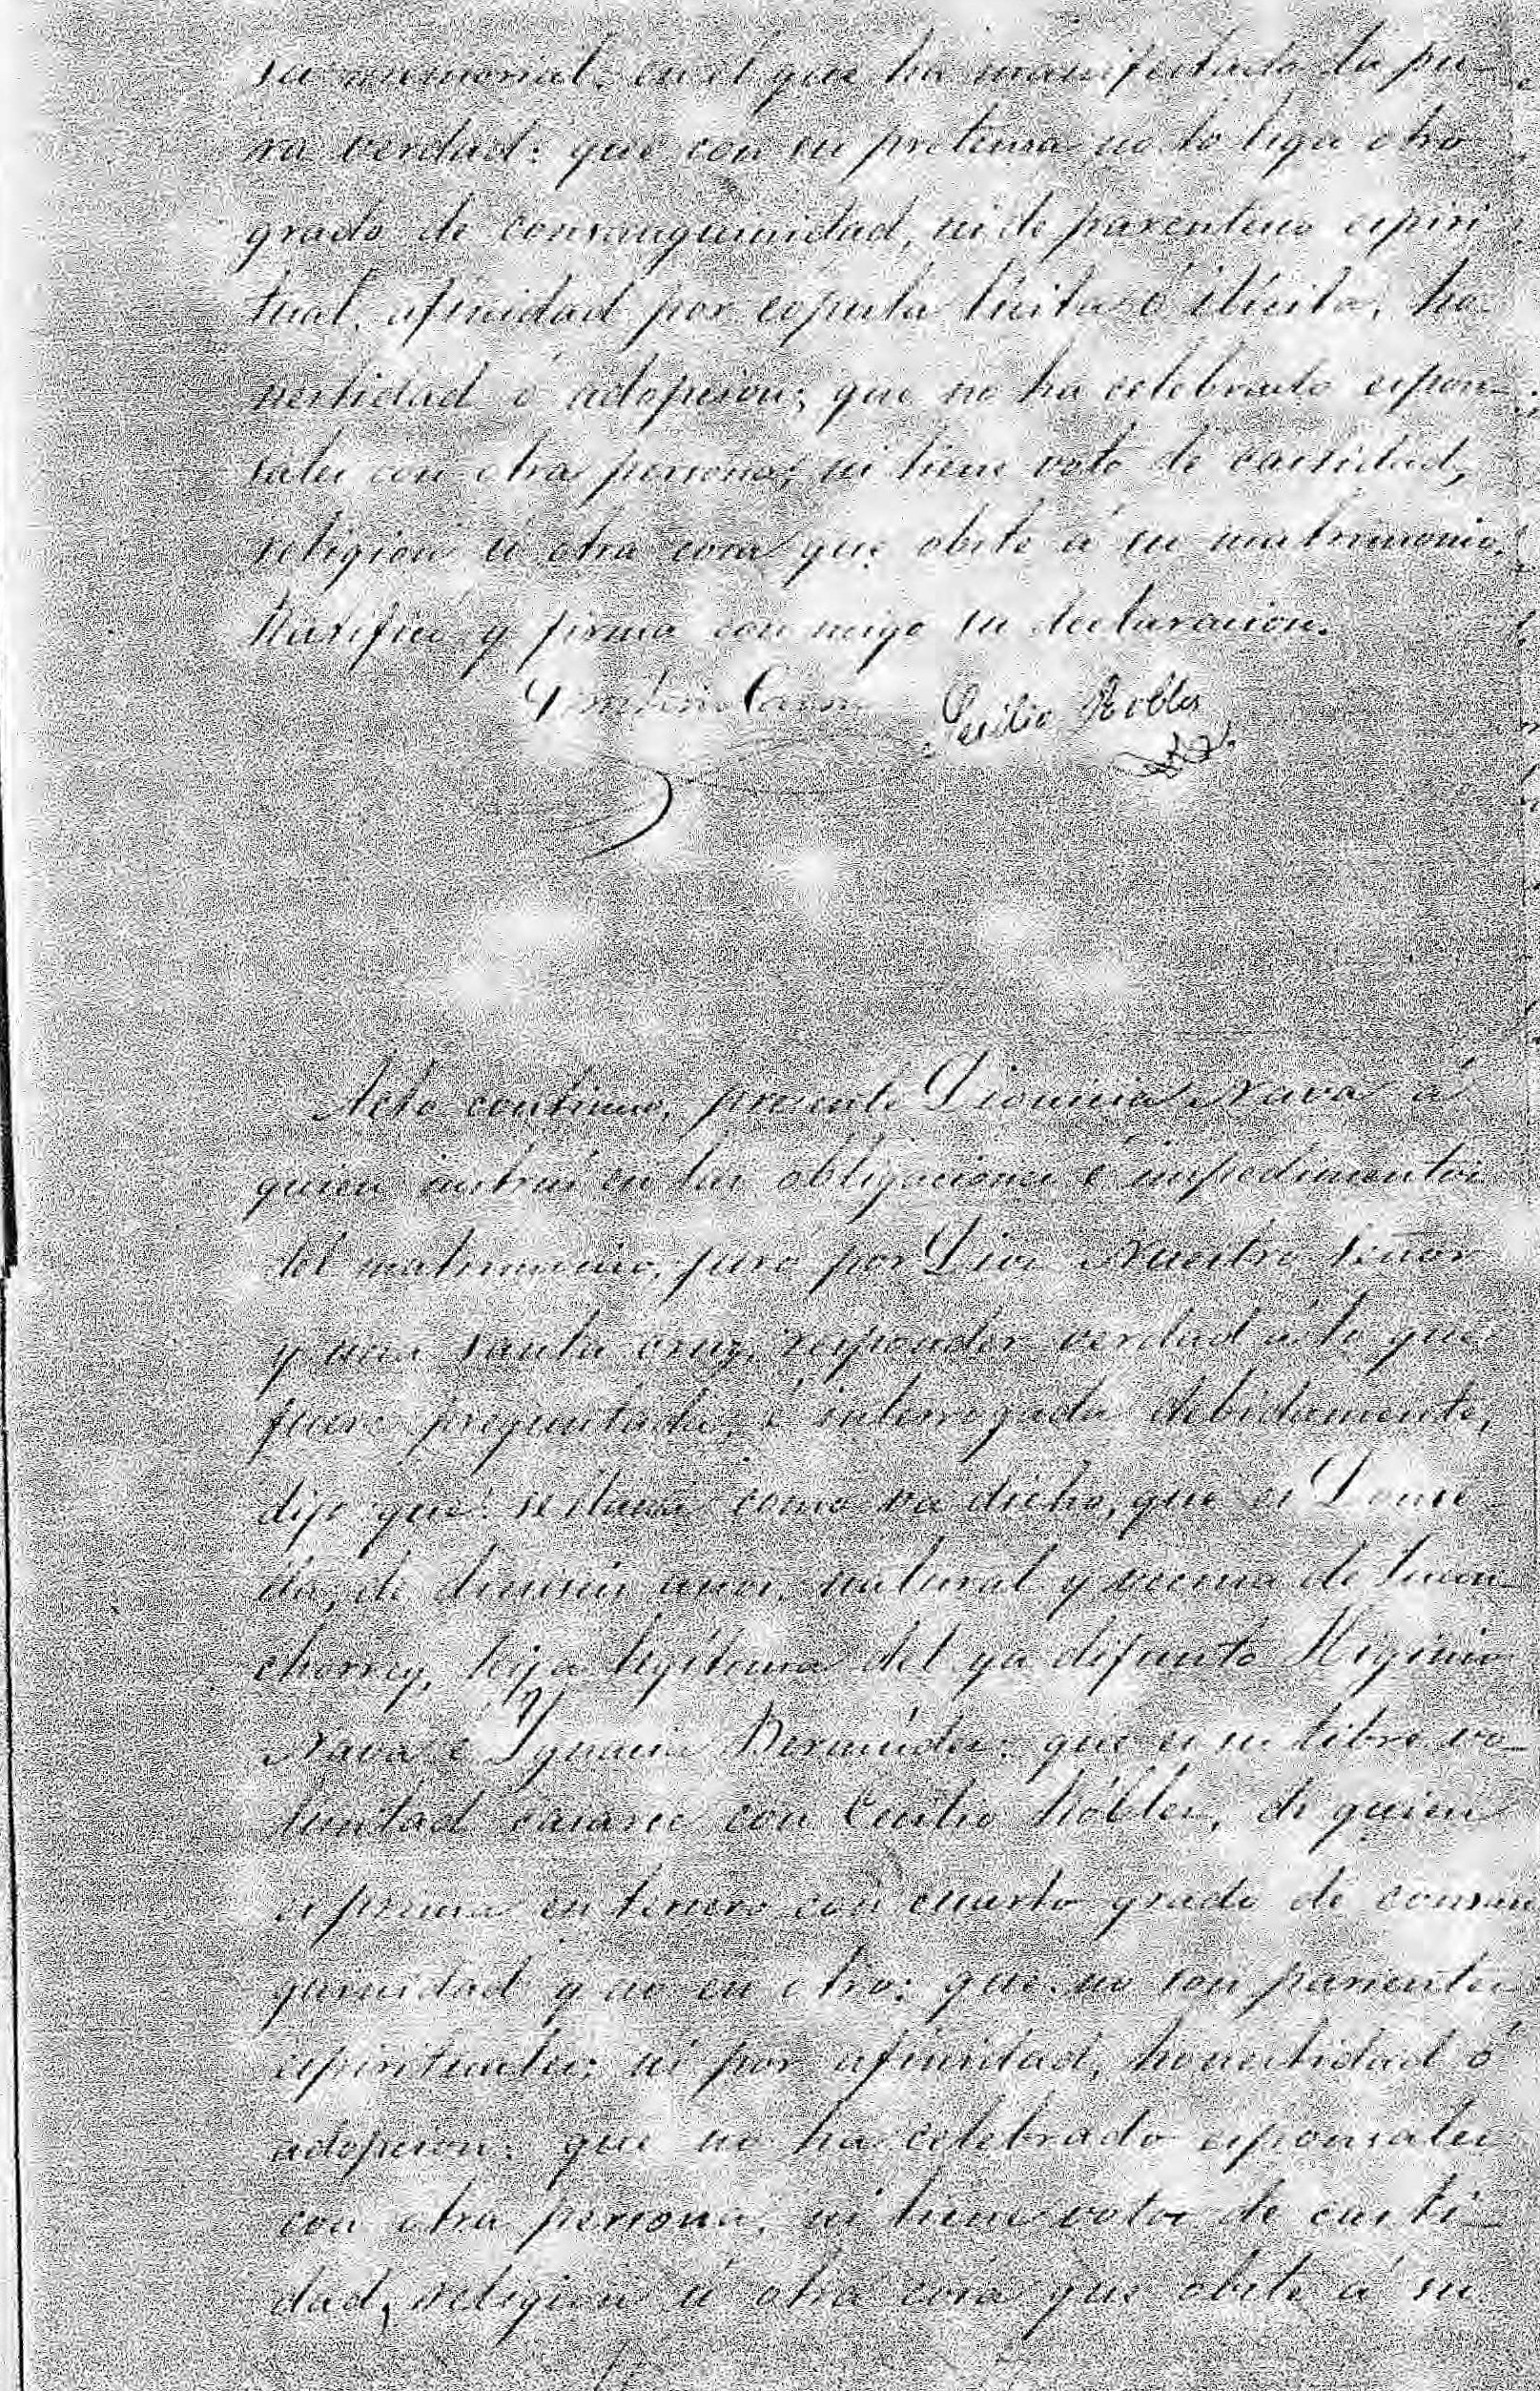 su memorial, en el que ha manifestado la pu-
ra verdad: que con su pretensa no lo liga otro
grado de consanguinidad, ni de parentesco espiri
tual, afinidad por copula lícita ó ilícita, ho
nestidad ó adopcion; que no ha celebrado espon-
sales con otra persona; ni tiene voto de castidad,
religion ú otra cosa que obste á su matrimonio.
Ratificó y firma con migo su declaracion.
Cecilio Robles
Acto continuo, presente Dionicia Nava á
quien instruí en las obligaciones é impedimentos
del matrimonio, juro por Dios Nuestro Señor
y una santa cruz, responder verdad á lo que
fuere preguntada, é interrogada debidamente,
dijo que: se llama como va dicho, que es Donce
lla, de años, natural y vecina de
hija legítima del ya difunto Higinio
Nava é Ygnacia Bermudes: que es su libre vo-
luntad casarse con Cecilio Robles, de quien
es prima en tercero con cuarto grado de consan
guinidad y no en otro: que no son parientes
espirituales; ni por afinidad, honestidad ó
adopcion: que no ha celebrado esponsales
con otra persona, ni tiene votos de casti-
dad, religion ú otra cosa que obste á su